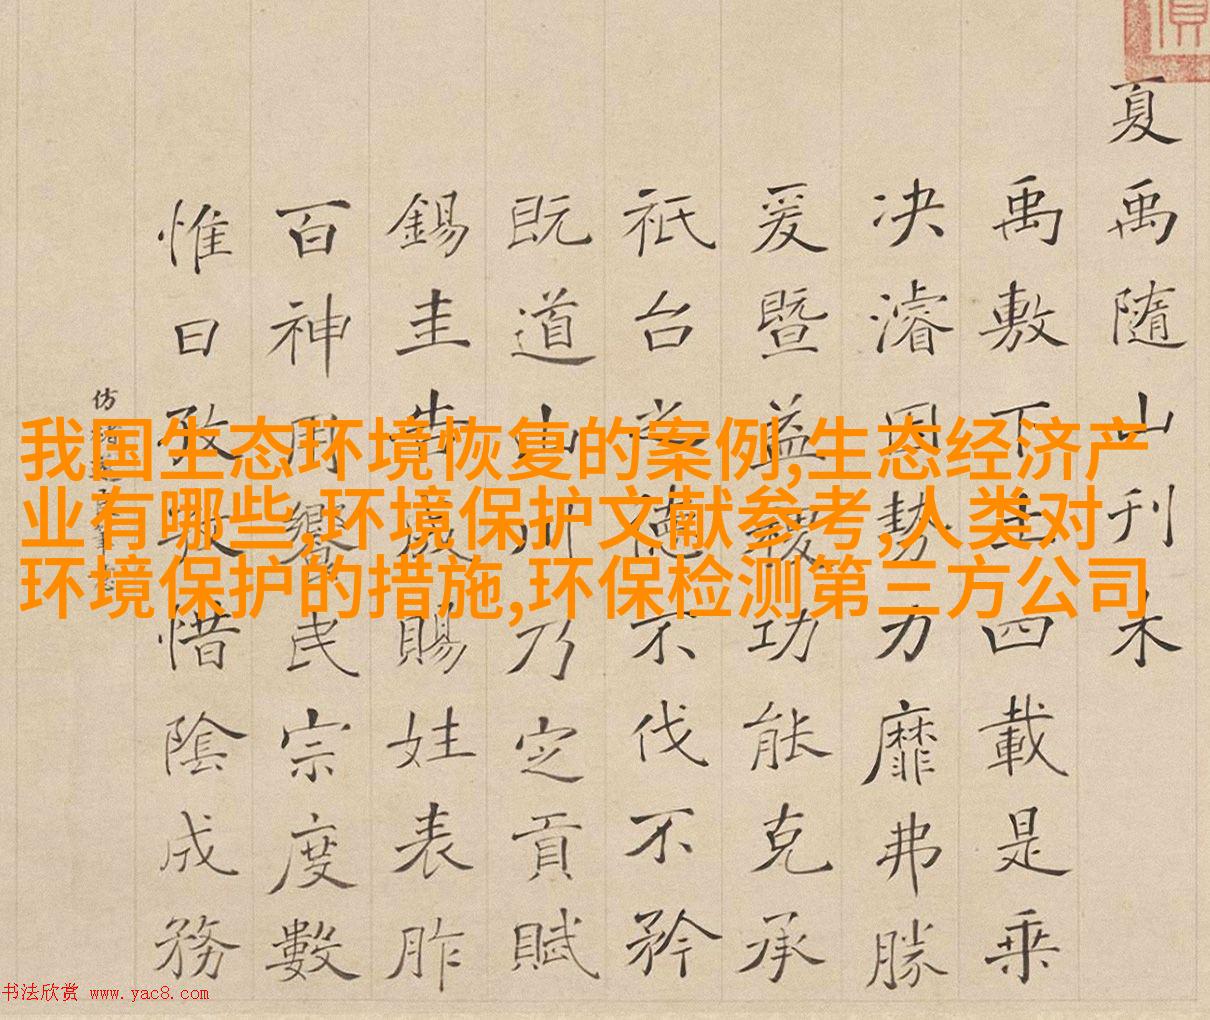 我国生态环境恢复的案例,生态经济产
业有哪些,环境保护文献参考,人类对
环境保护的措施,环保检测第三方公司
夏禹隨山刊木
禹敷下土四載是乘
决濬因勢力靡弗勝
爰暨益稷功能克承
祇台德不伐不矜
既道山川乃定貢賦
錫圭告厥賜姓表胙
百神用饗民宗度數
惟日孜惜陰成務
仿
书法欣赏 www.yac8.com